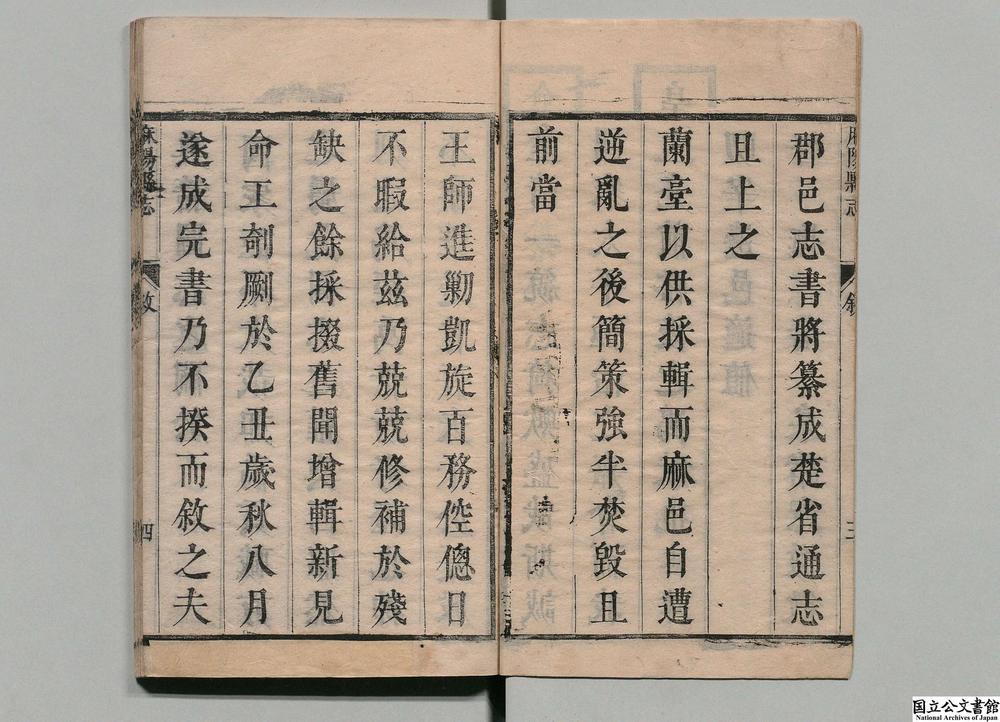 郡邑志書將纂成楚省通志
且上之
蘭臺以供採輯而麻邑自遭
逆亂之後簡策強半焚毀且
前當
王師進勦凱旋百務倥傯日
不暇給茲乃兢兢修補於殘
缺之餘採掇舊聞增輯新見
命工剞劂於乙丑歲秋八月
遂成完書乃不揆而敘之夫
麻陽縣志
敘
三
麻陽縣志
敘
四
国立公文書館
National Archives of Japan